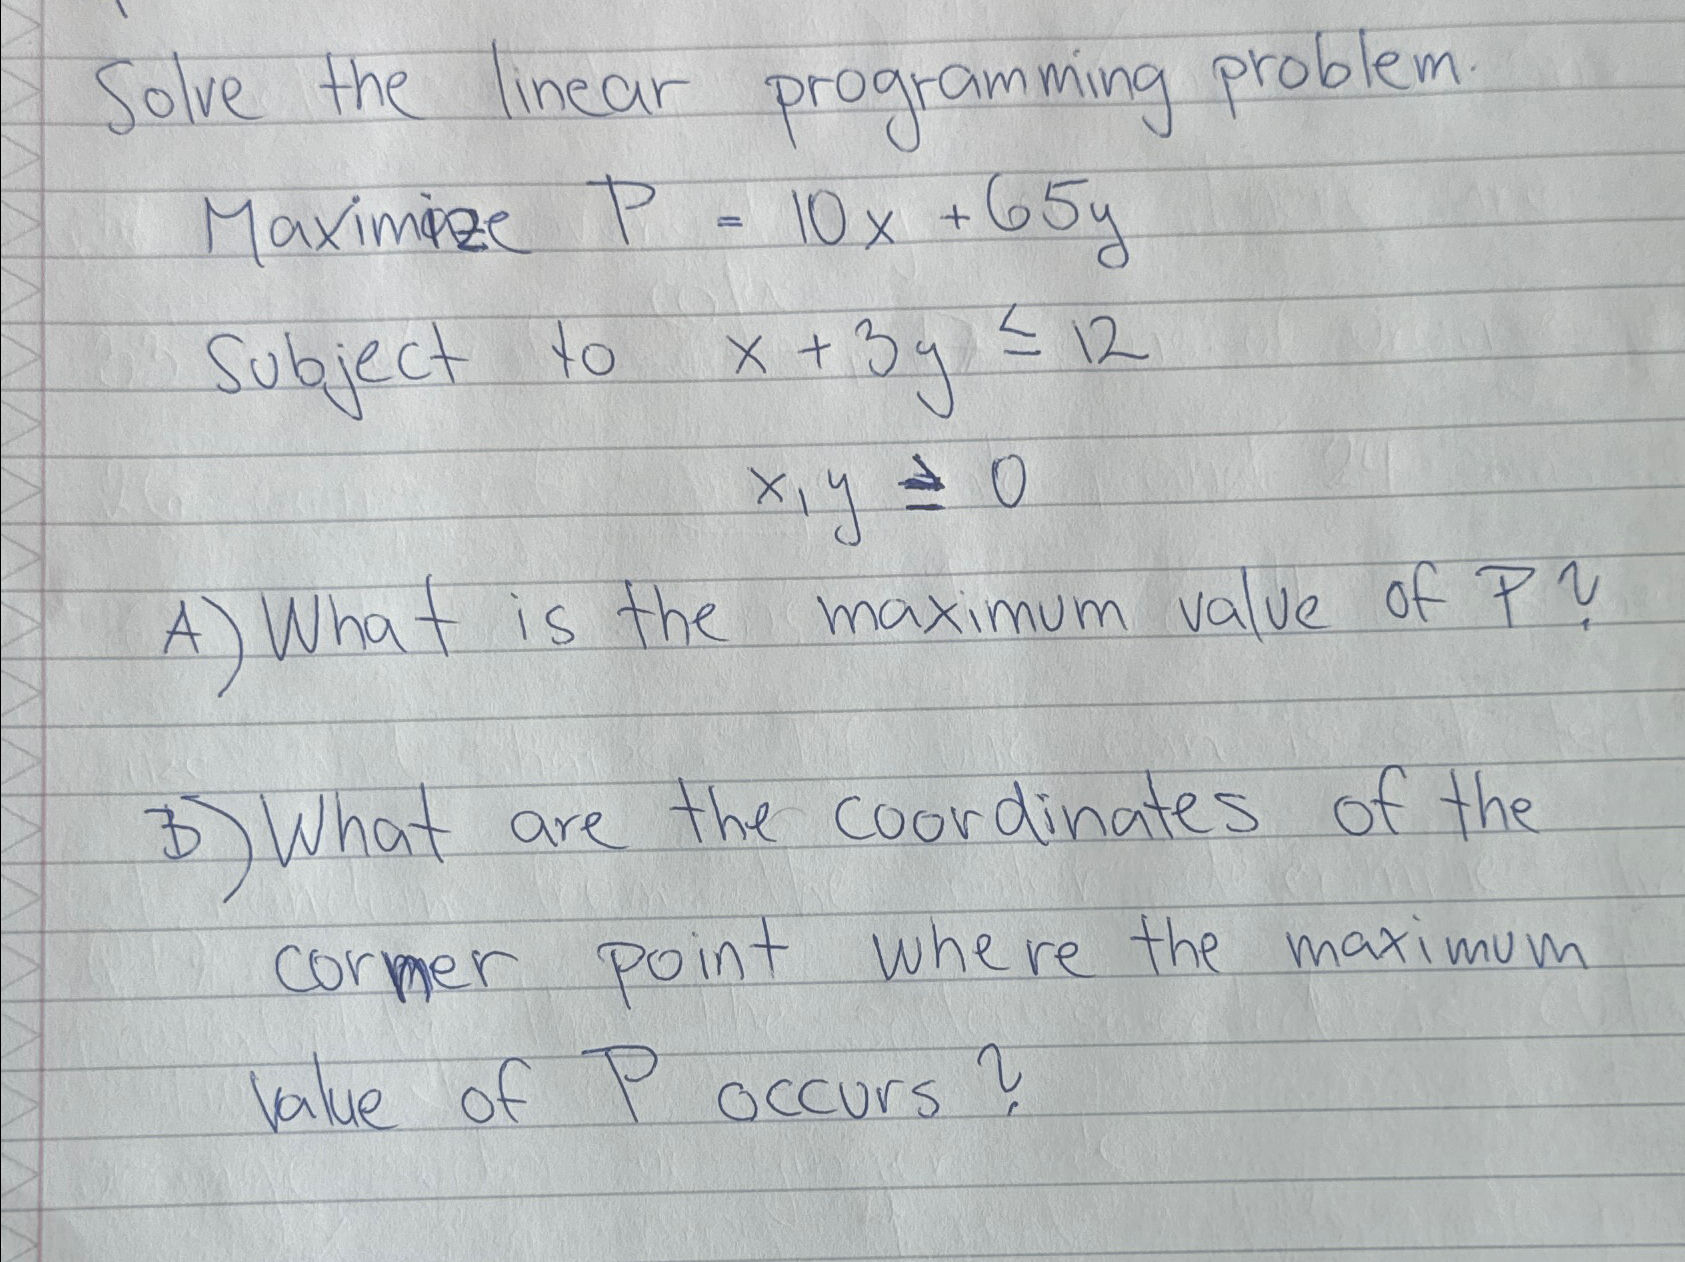 Solve the linear programming problem.
Maximize P = 10x + 65y
Subject to x + 3y ≤ 12
x, y ≥ 0
A) What is the maximum value of P?
B) What are the coordinates of the
corner point where the maximum
value of P occurs?